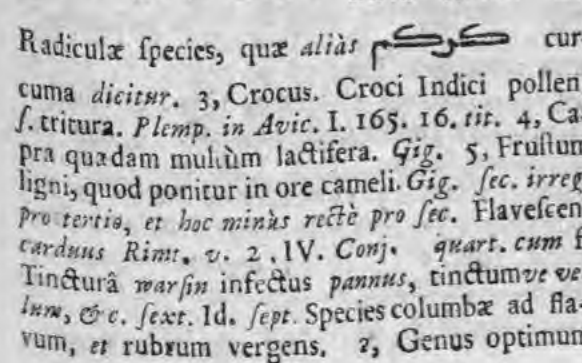 Radiculæ ſpecies, quæ aliàs كركم cur
cuma dicitur. 3, Crocus. Croci Indici pollen
ſ. tritura. Plemp. in Avic. I. 165. 16. tit. 4, Ca-
pra quadam multùm lactifera. Gig. 5, Fruſtum
ligni, quod ponitur in ore cameli. Gig. ſec. irreg
pro tertia, et hoc minùs rectè pro ſec. Flaveſcen
carduus Rimt. v. 2. IV. Conj. quart. cum f
Tincturâ warſin infectus pannus, tinctumve ve
lum, &c. ſext. Id. ſept. Species columbæ ad fla-
vum, et rubrum vergens. ?, Genus optimum